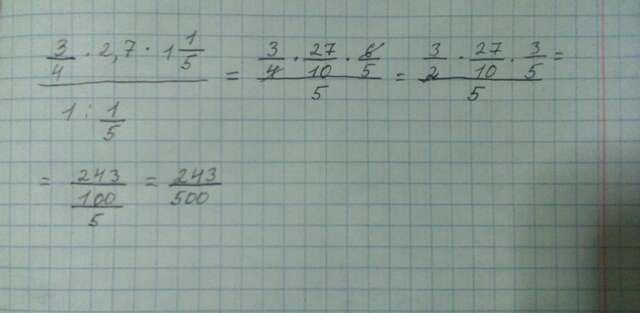 3/4 · 2,7 · 1 1/5 / 1 : 1/5 = 3/4 · 27/10 · 6/5 / 5 = 3/2 · 27/10 · 3/5 / 5 =
= 243/100 / 5 = 243/500